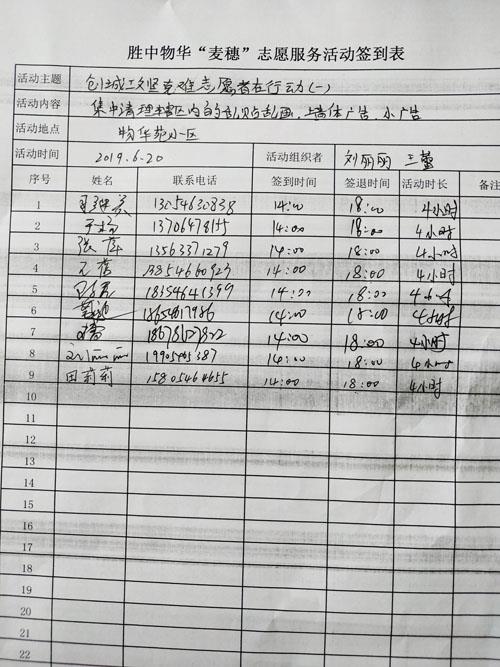 胜中物华“麦穗”志愿服务活动签到表
活动主题 创城攻坚克难志愿者在行动(一)
活动内容 集中清理辖区内的乱贴乱画，墙体广告，小广告
活动地点 物华苑小区
活动时间 2019.6.20 活动组织者 刘丽丽 王蕾
序号 姓名 联系电话 签到时间 签退时间 活动时长 备注
1 13054630838 14:00 18:00 4小时
2 14:00 18:00 4小时
3 张萍 13563371279 14:00 18:00 4小时
4 13854660929 14:00 18:00 4小时
5 18354641399 14:00 18:00 4小时
6 14:00 18:00 4小时
7 14:00 18:00 4小时
8 刘丽丽 14:00 18:00 4小时
9 田莉莉 15805464655 14:00 18:00 4小时
10
11
12
13
14
15
16
17
18
19
20
21
22